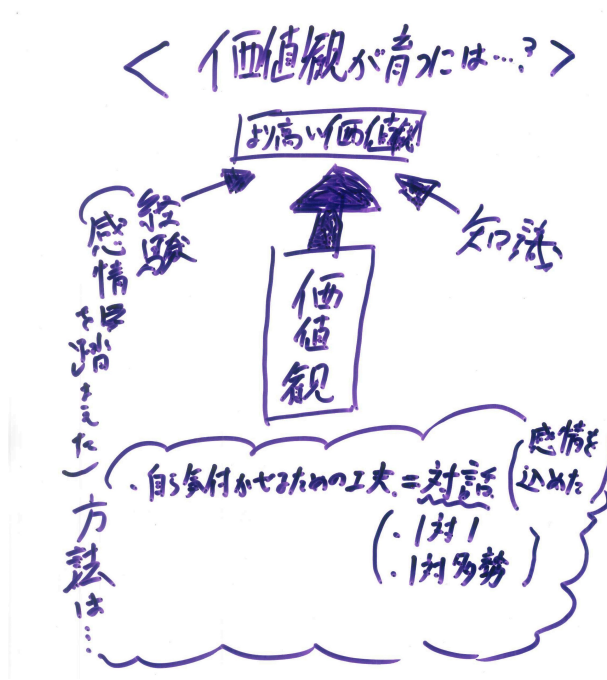 < 価値観が育つには…？ >
より高い価値観
経験
(感情を踏まえた)
知識
価値観
方法は…
・自ら気付かせるための工夫＝対話(感情を込めた)
(・1対1
・1対多勢)